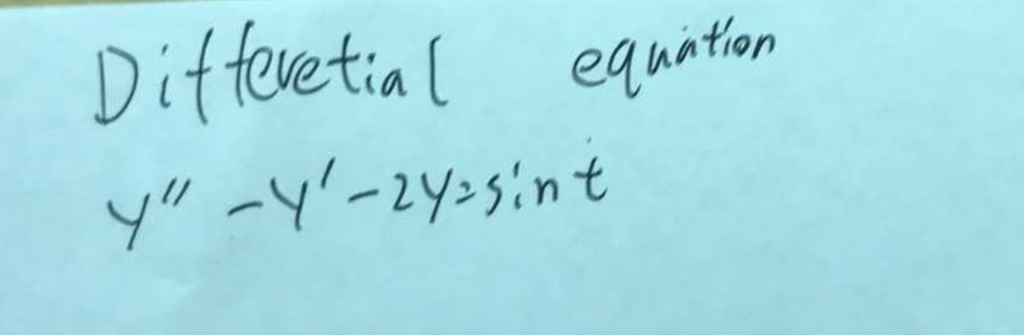 Differetial equation
y'' - y' - 2y = sin t